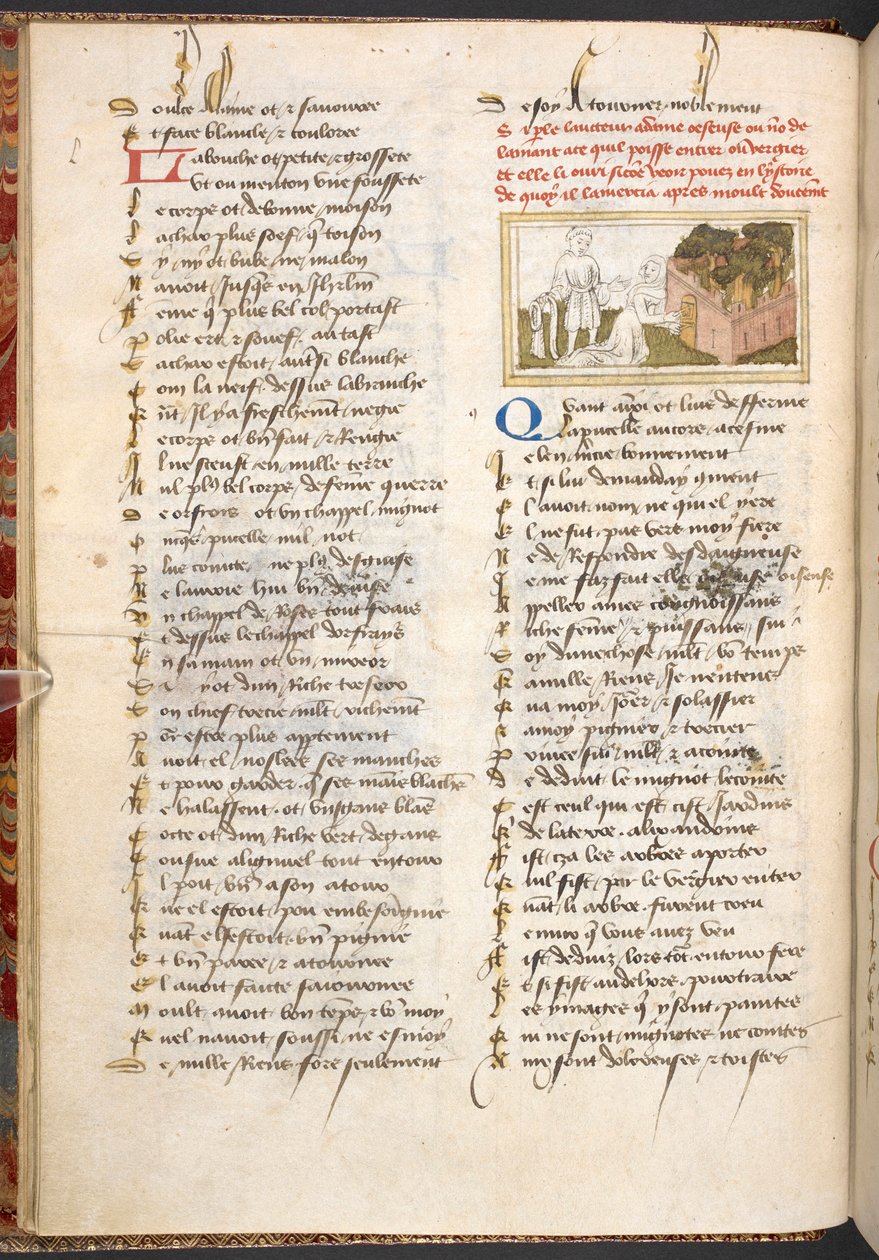 Doulce alaine ot et savouree
Et face blanche et couloree
La bouche ot petite et grossete
Et ou menton une foussete
Le corps ot de bonne moison
La char plus soef que toison
Sy ny ot bube ne malon
Navoit jusques en Jhrlm
Feme que plus bel col portast
Polie ert et souef au tast
Sa char estoit aussi blanche
Com la neif dessus la branche
Quant il y a freschement negie
Le corps ot bien fait et
Il ne sceust en nulle terre
Nul plus bel corps de feme querre
De orfrois ot un chappel mignot
Oncques pucelle nul not
Plus cointe ne plus desguise
Ne lauroie hui bien devise
Un chappel de roses tout frais
Et dessus le chappel dorfrays
En sa main ot un mireor
Sy ot dun riche tresoor
Son chief trecie mlt richement
Pour estre plus apptement
Avoit el noslees ses manches
Et pour garder que ses mains blaches
Ne halassent ot uns gans blans
Cotte ot dun riche vert de gans
Cousue a lignuel tout entour
Il poit bien a son atour
Quel estoit pou embesoignie
Quant elle sestoit bien pignie
Et bien paree et atournee
El avoit faicte sa journee
Moult avoit bon temps et bon moy
Quel navoit soussi ne esmoy
De nulle riens fors seulement
De soy atourner noblement
Si ple laucteur a dame oeseuse ou no de
lamant a ce quil poisse entrer ou vergier
et elle li ouvri sicoe veoir pouez en lystoire
de quoy il lamercia apres moult doucemt
Quant ainsi ot luis desferme
La pucelle ancore acesme
Je len mercie bonnement
Et si luy demanday coment
El avoit nom ne qui el yere
El ne fut pas vers moy fiere
Ne de respondre desdaigneuse
Je me faz fait elle oiseuse
Appeller a mes congnoissans
Riche feme et puissans sui
Soy dune chose mlt bon temps
Qua nulle riens je nentens
Qua moy joer et solassier
A moy pignier et trecier
Privee sui mlt et acointe
De deduit le mignot le cointe
Cest ceul qui est cist jardins
Qui de la terre alixandrins
Fist cza les arbres aporter
Quil fist par le vergier enter
Quant li arbre furent creu
Le mur que vous avez veu
Fist deduiz lors tot entour fere
Et si fist au dehors pourtraire
Les ymages qui y sont paintes
Qui ne sont mignotes ne cointes
Ains sont dolereuses et tristes